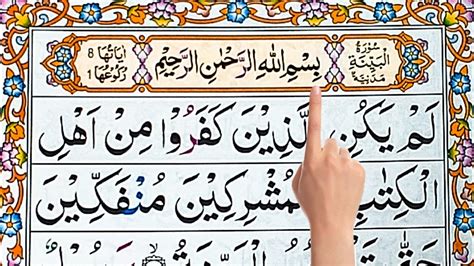 سُوْرَةُ
الْبَيِّنَةِ
مَدَنِيَّةٌ
بِسْمِ اللّٰهِ الرَّحْمٰنِ الرَّحِيْمِ
اٰيَاتُهَا 8
رُكُوْعُهَا 1
لَمْ يَكُنِ الَّذِيْنَ كَفَرُوْا مِنْ اَهْلِ
الْكِتٰبِ وَالْمُشْرِكِيْنَ مُنْفَكِّيْنَ